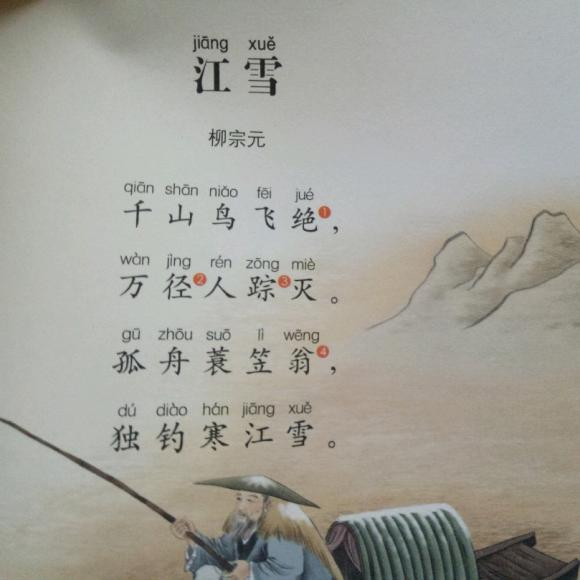 jiāng xuě
江雪
柳宗元
qiān shān niǎo fēi jué
千山鸟飞绝❶，
wàn jìng rén zōng miè
万径❷人踪❸灭。
gū zhōu suō lì wēng
孤舟蓑笠翁❹，
dú diào hán jiāng xuě
独钓寒江雪。